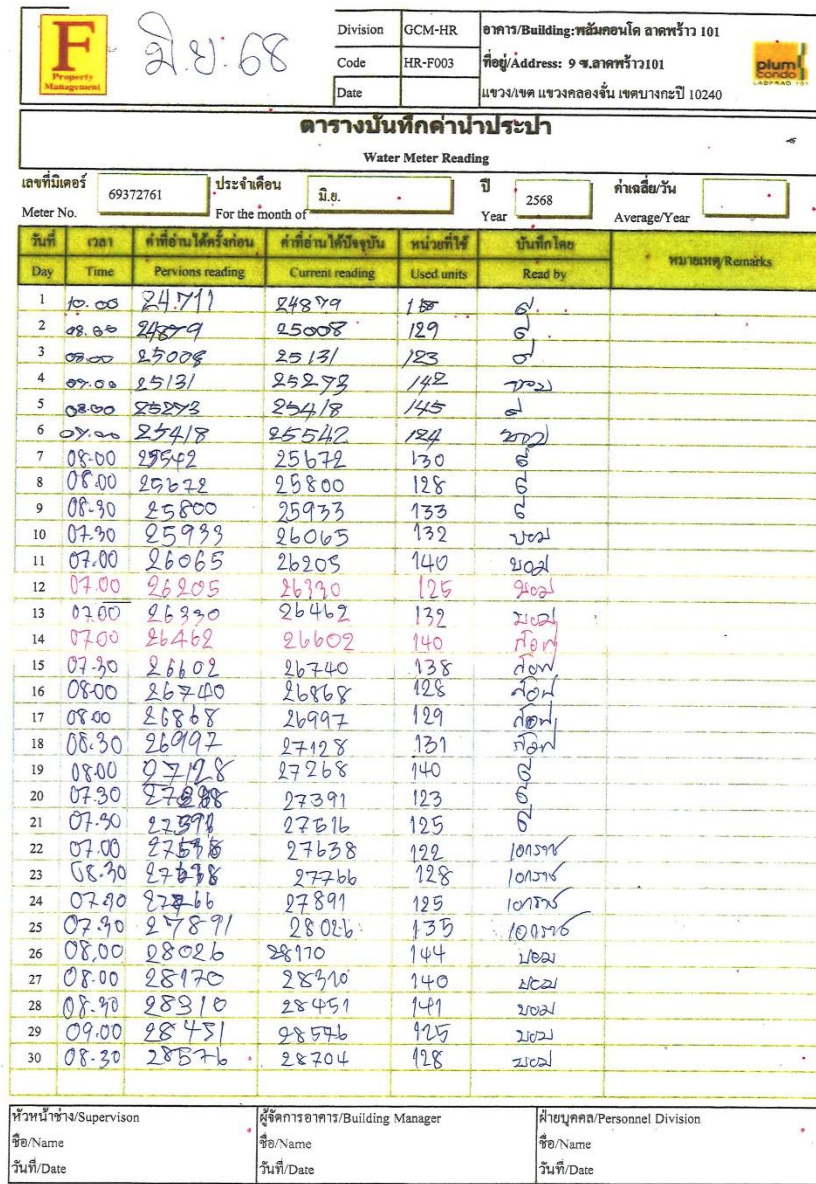 F
Property
Management
มิ.ย. 68
Division GCM-HR อาคาร/Building:พลัมคอนโด ลาดพร้าว 101
Code HR-F003 ที่อยู่/Address: 9 ซ.ลาดพร้าว101
Date แขวง/เขต แขวงคลองจั่น เขตบางกะปิ 10240
plum
condo
LADPRAO 101
ตารางบันทึกค่าน้ำประปา
Water Meter Reading
เลขที่มิเตอร์ 69372761 ประจำเดือน มิ.ย. ปี 2568 ค่าเฉลี่ย/วัน
Meter No. For the month of Year Average/Year
วันที่ เวลา ค่าที่อ่านได้ครั้งก่อน ค่าที่อ่านได้ปัจจุบัน หน่วยที่ใช้ บันทึกโดย หมายเหตุ/Remarks
Day Time Pervions reading Current reading Used units Read by
1 10.00 24.711 24879
2 08.00 24879 25008 129
3 25008 25131 123
4 07.00 25131 25273 142
5 08.00 25273 25418 145
6 07.00 25418 25542 124
7 08.00 25542 25672 130
8 08.00 25672 25800 128
9 08.30 25800 25933 133
10 07.30 25933 26065 132 บอม
11 07.00 26065 26205 140 บอม
12 07.00 26205 26330 125 บอม
13 07.00 26330 26462 132 บอม
14 07.00 26462 26602 140
15 07.30 26602 26740 138
16 08.00 26740 26868 128
17 08.00 26868 26997 129
18 08.30 26997 27128 131
19 08.00 27128 27268 140
20 07.30 27391 123
21 07.30 27391 27516 125
22 07.00 27638 122
23 08.30 27638 27766 128
24 07.30 27766 27891 125
25 07.30 27891 28026 135
26 08,00 28026 28170 144 บอม
27 08.00 28170 28310 140 บอม
28 08.30 28310 28451 141 บอม
29 09.00 28451 28576 125 บอม
30 08.30 28576 28704 128 บอม
หัวหน้าช่าง/Supervison ผู้จัดการอาคาร/Building Manager ฝ่ายบุคคล/Personnel Division
ชื่อ/Name ชื่อ/Name ชื่อ/Name
วันที่/Date วันที่/Date วันที่/Date